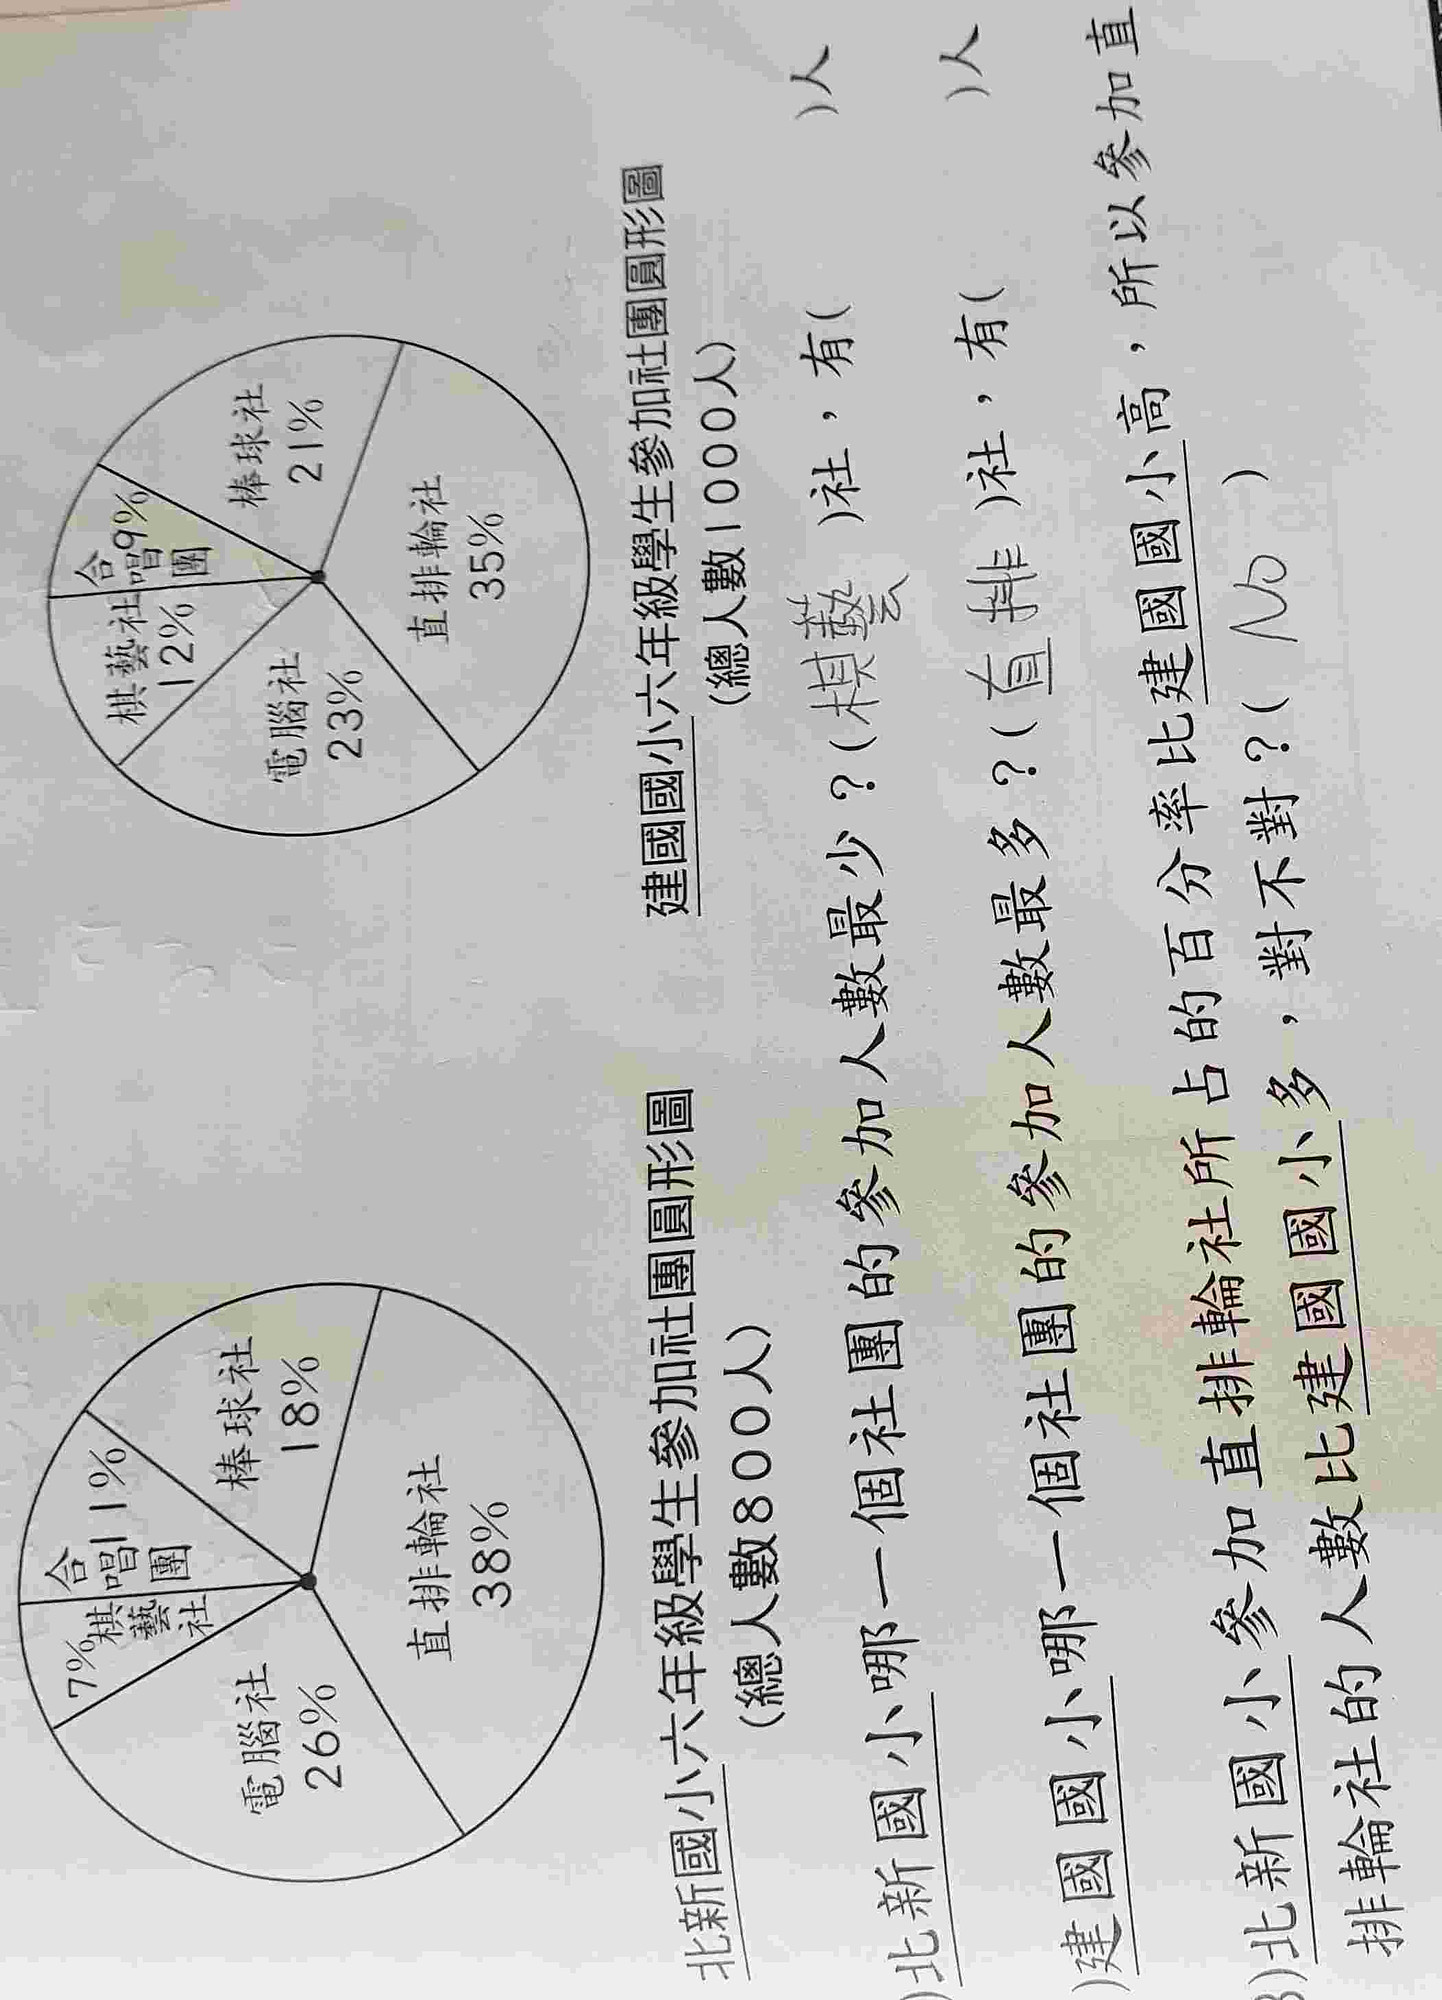 棋藝社
7%
合唱團
11%
棒球社
18%
電腦社
26%
直排輪社
38%
北新國小六年級學生參加社團圓形圖
(總人數800人)
棋藝社
12%
合唱團
9%
棒球社
21%
電腦社
23%
直排輪社
35%
建國國小六年級學生參加社團圓形圖
(總人數1000人)
)北新國小哪一個社團的參加人數最少?(棋藝)社,有( )人
)建國國小哪一個社團的參加人數最多?(直排)社,有( )人
3)北新國小參加直排輪社所占的百分率比建國國小高,所以參加直
排輪社的人數比建國國小多,對不對?( No )